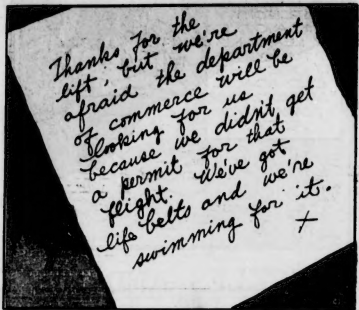 Thanks for the
lift, but we're
afraid the department
of commerce will be
looking for us
because we didn't get
a permit for that
flight. We've got
life belts and we're
swimming for it.
X